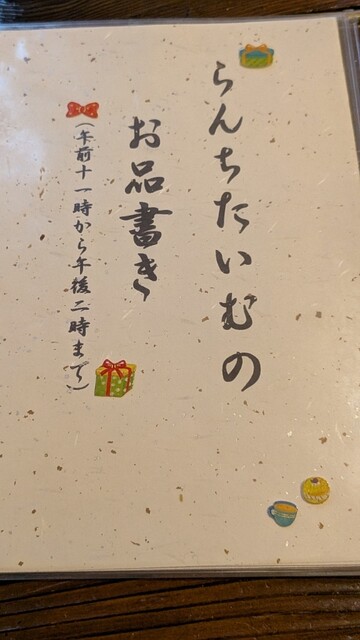 らんちたいむの
お品書き
（午前十一時から午後二時まで）